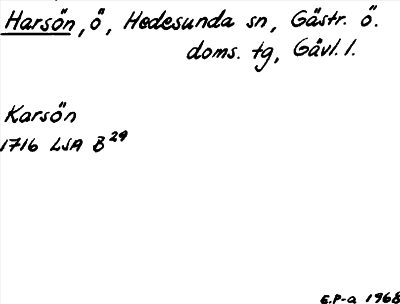 Harsön, ö, Hedesunda sn, Gästr. ö.
doms. tg, Gävl. l.
Karsön
1716 LSA B²⁹
E.P-a 1968